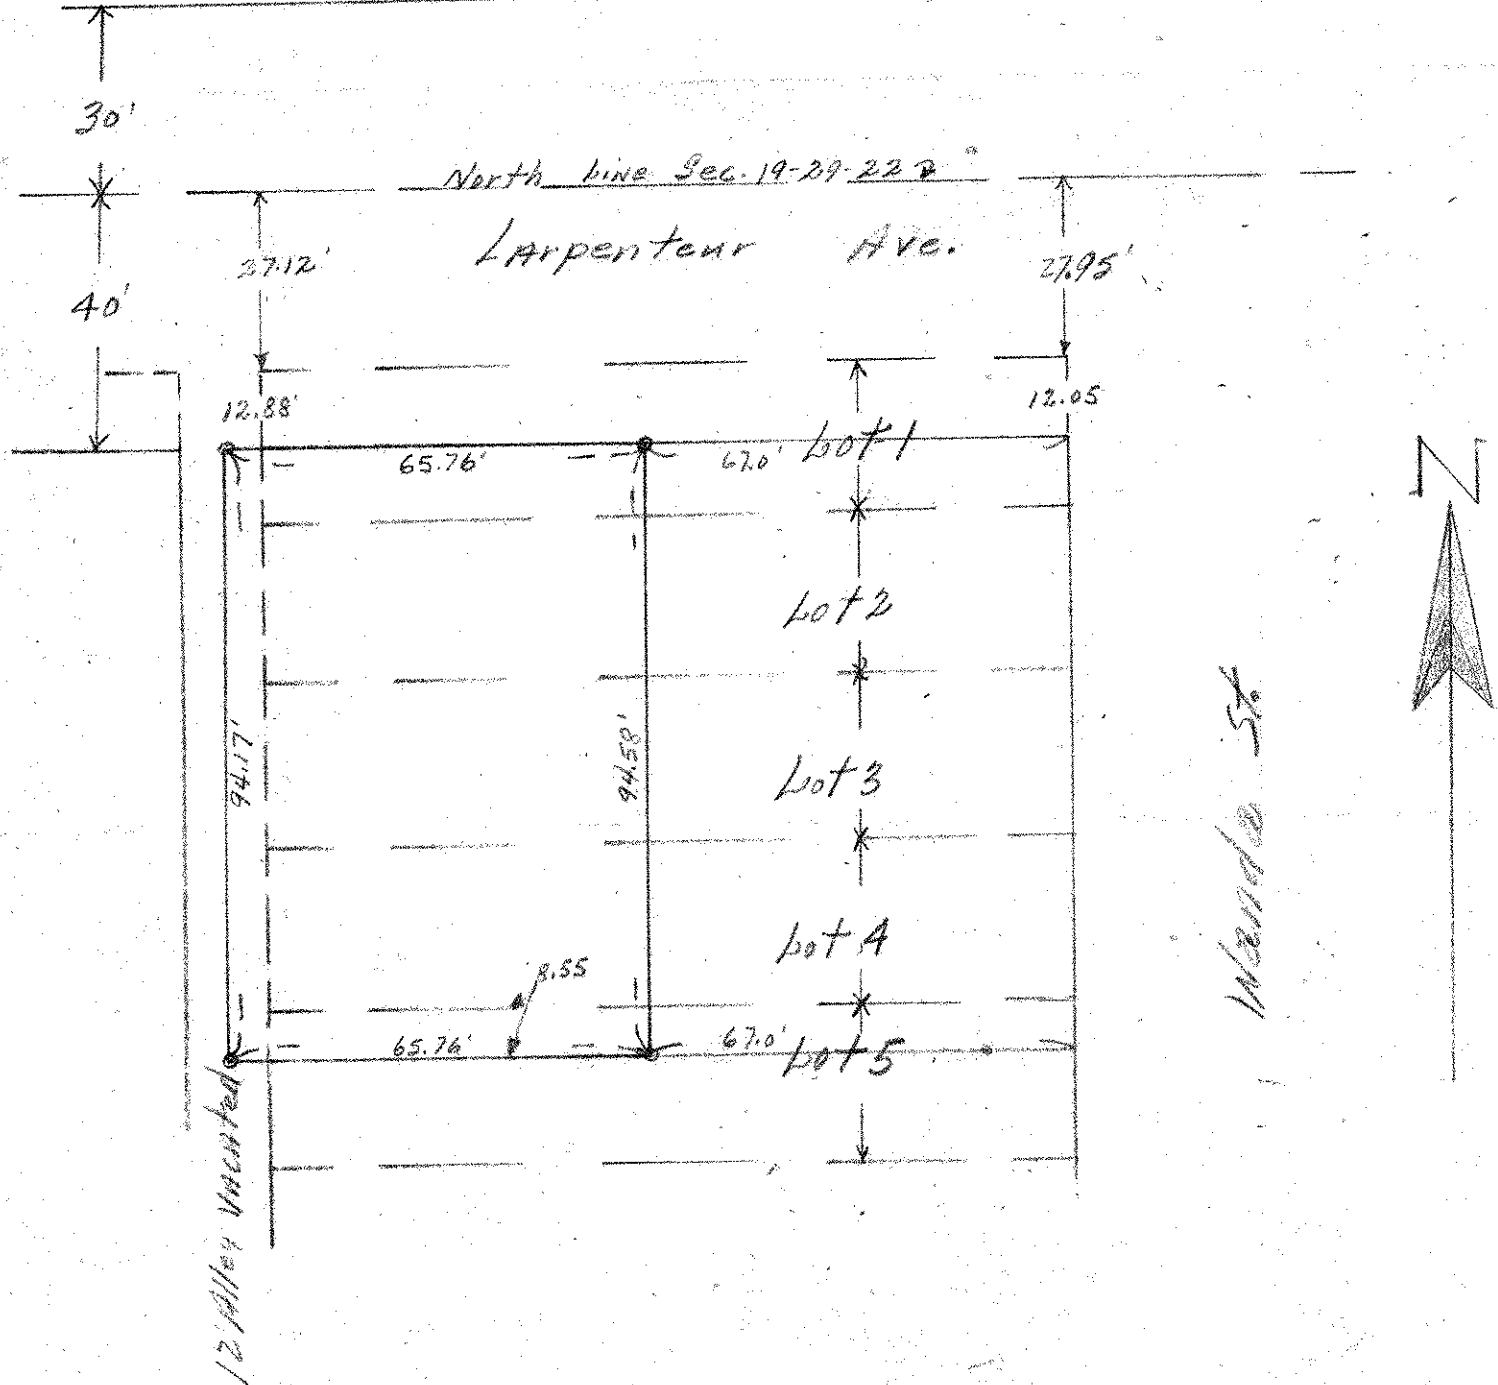 30'
North Line Sec. 19-29-22
Larpenteur Ave.
27.12'
27.95'
40'
12.88'
12.05
65.76'
67.0'
Lot 1
N
Lot 2
94.17'
94.58'
Lot 3
Wanda St.
Lot 4
8.55
65.76'
67.0'
Lot 5
12' Alley Vacated